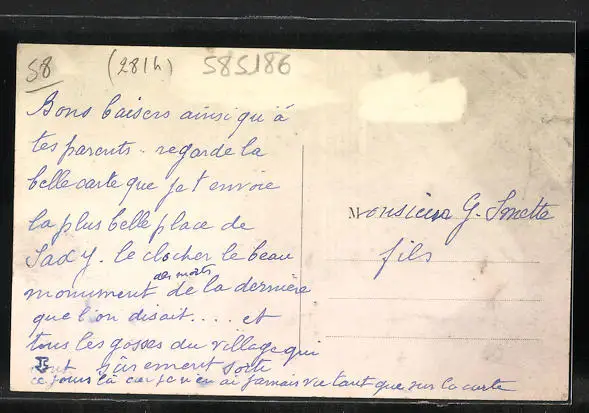 58 (281h) 585186
Bons baisers ainsi qu'à
tes parents - regarde la
belle carte que je t envoie
la plus belle place de
SadY. le clocher le beau
monument des morts de la dernière
que l'on disait.... et
tous les gosses du village qui
sont sûrement sorti
ce jour là car je n'en ai jamais vu tant que sur la carte
Monsieur G. Smette
fils